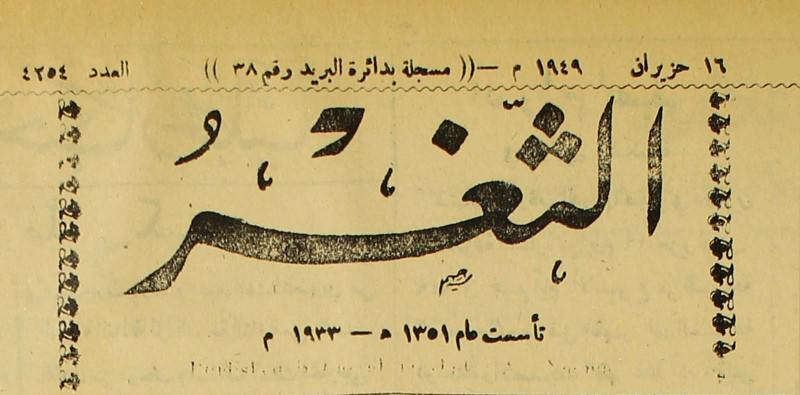 ١٦ حزيران ١٩٤٩ م —(( مسجلة بدائرة البريد رقم ٣٨ )) العدد ٤٢٥٤
الثغر
رحيم
تأسست عام ١٣٥١ هـ — ١٩٣٣ م